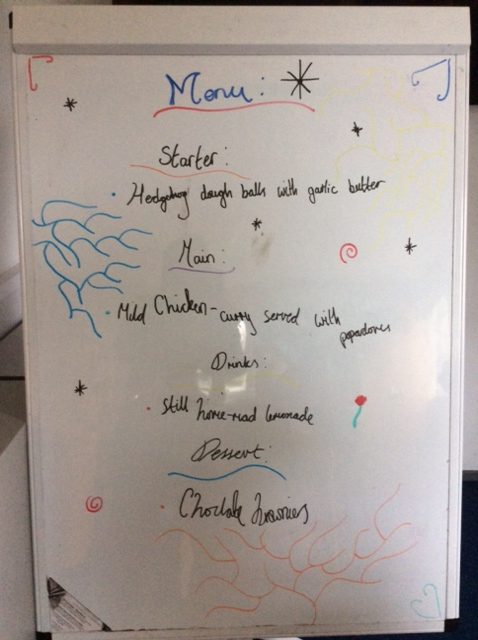 Menu:
Starter:
Hedgehog dough balls with garlic butter
Main:
Mild Chicken-curry served with
popadoms
Drinks:
Still home-mad lemonade
Dessert:
Choclate brownies